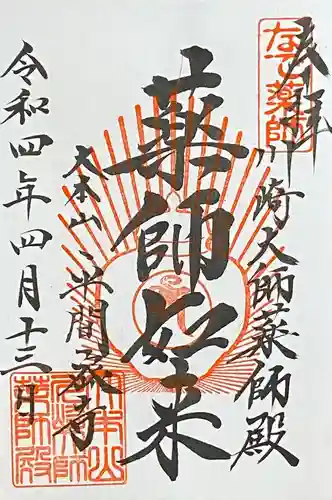 奉拝
なで薬師
川崎大師薬師殿
薬師如来
大本山
平間兼寺
令和四年四月十三日
大本山
川崎大師
薬師殿